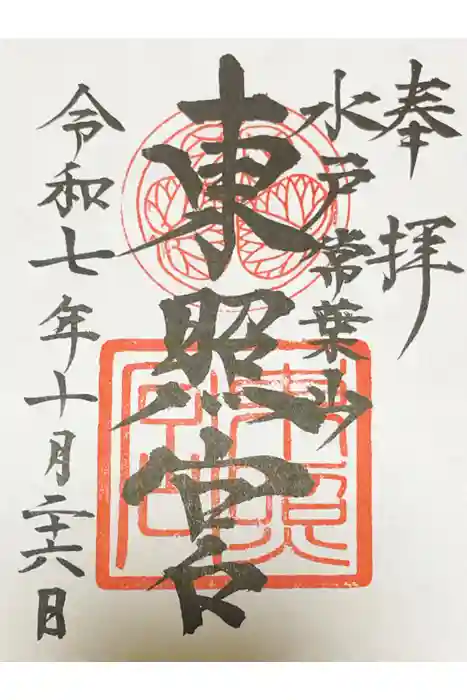 奉拝
水戸常葉山
東照宮
令和七年十月二十六日
東照宮